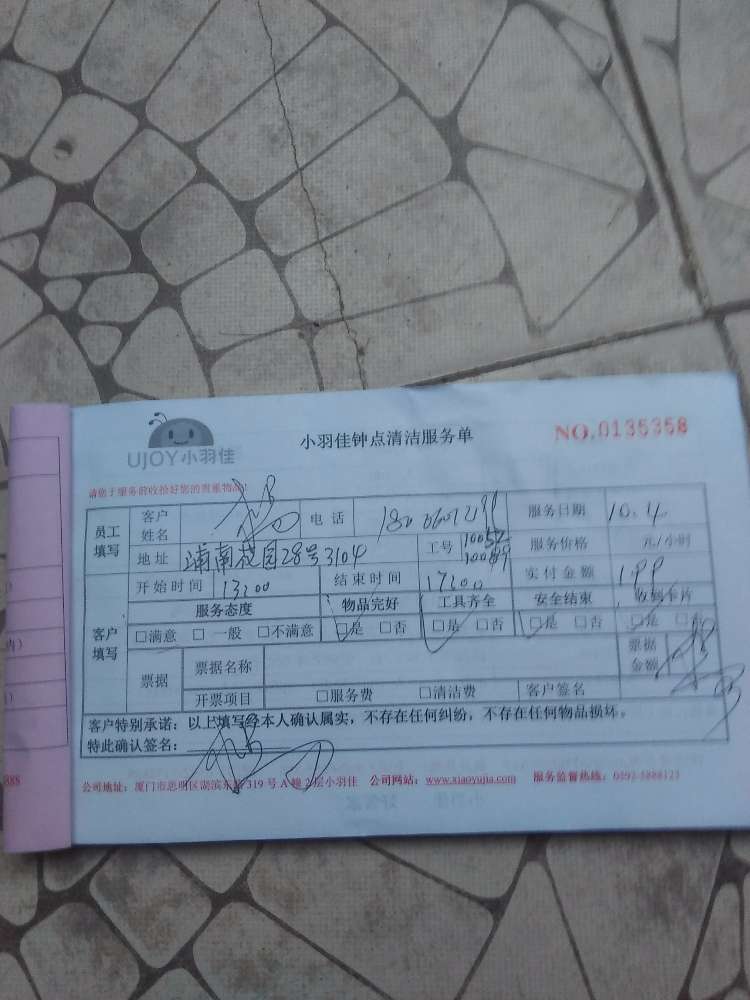 UJOY小羽佳
小羽佳钟点清洁服务单
NO.0135358
请您于服务前收拾好您的贵重物品!
员工填写 客户姓名 电话 服务日期 10.4
地址 浦南花园28号3104 工号 服务价格 元/小时
开始时间 13:00 结束时间 17:00 实付金额 199
客户填写 服务态度 物品完好 工具齐全 安全结束 收到卡片
□满意 □一般 □不满意 □是 □否 □是 □否 □是 □否 □是 □否
票据 票据名称 票据金额
开票项目 □服务费 □清洁费 客户签名
客户特别承诺:以上填写经本人确认属实,不存在任何纠纷,不存在任何物品损坏。
特此确认签名:
公司地址:厦门市思明区湖滨东路319号A幢2层小羽佳 公司网站:www.xiaoyujia.com 服务监督热线:0592-5888123